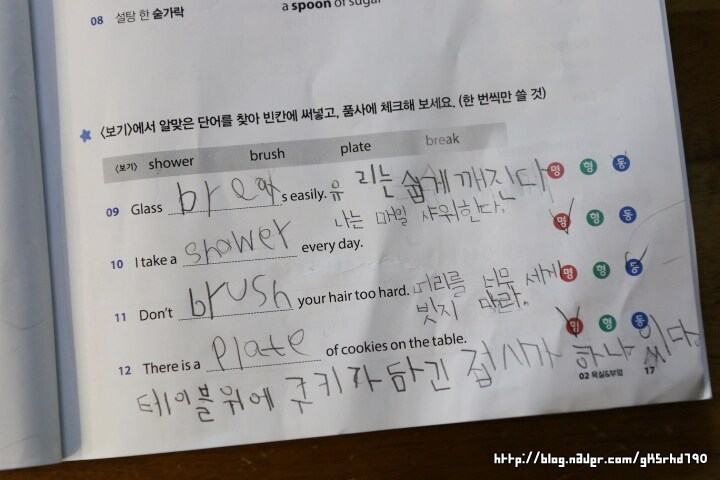 08 설탕 한 숟가락 a spoon of sugar
<보기>에서 알맞은 단어를 찾아 빈칸에 써넣고, 품사에 체크해 보세요. (한 번씩만 쓸 것)
<보기> shower brush plate break
09 Glass break s easily. 유리는 쉽게 깨진다 명 형 동
나는 매일 샤워한다.
10 I take a shower every day. 명 형 동
11 Don't brush your hair too hard. 머리를 너무 세게 명 형 동
빗지 마라.
12 There is a plate of cookies on the table. 명 형 동
테이블 위에 쿠키가 담긴 접시가 하나 있다.
02 욕실&부엌 17
http://blog.naver.com/gk5rhd790